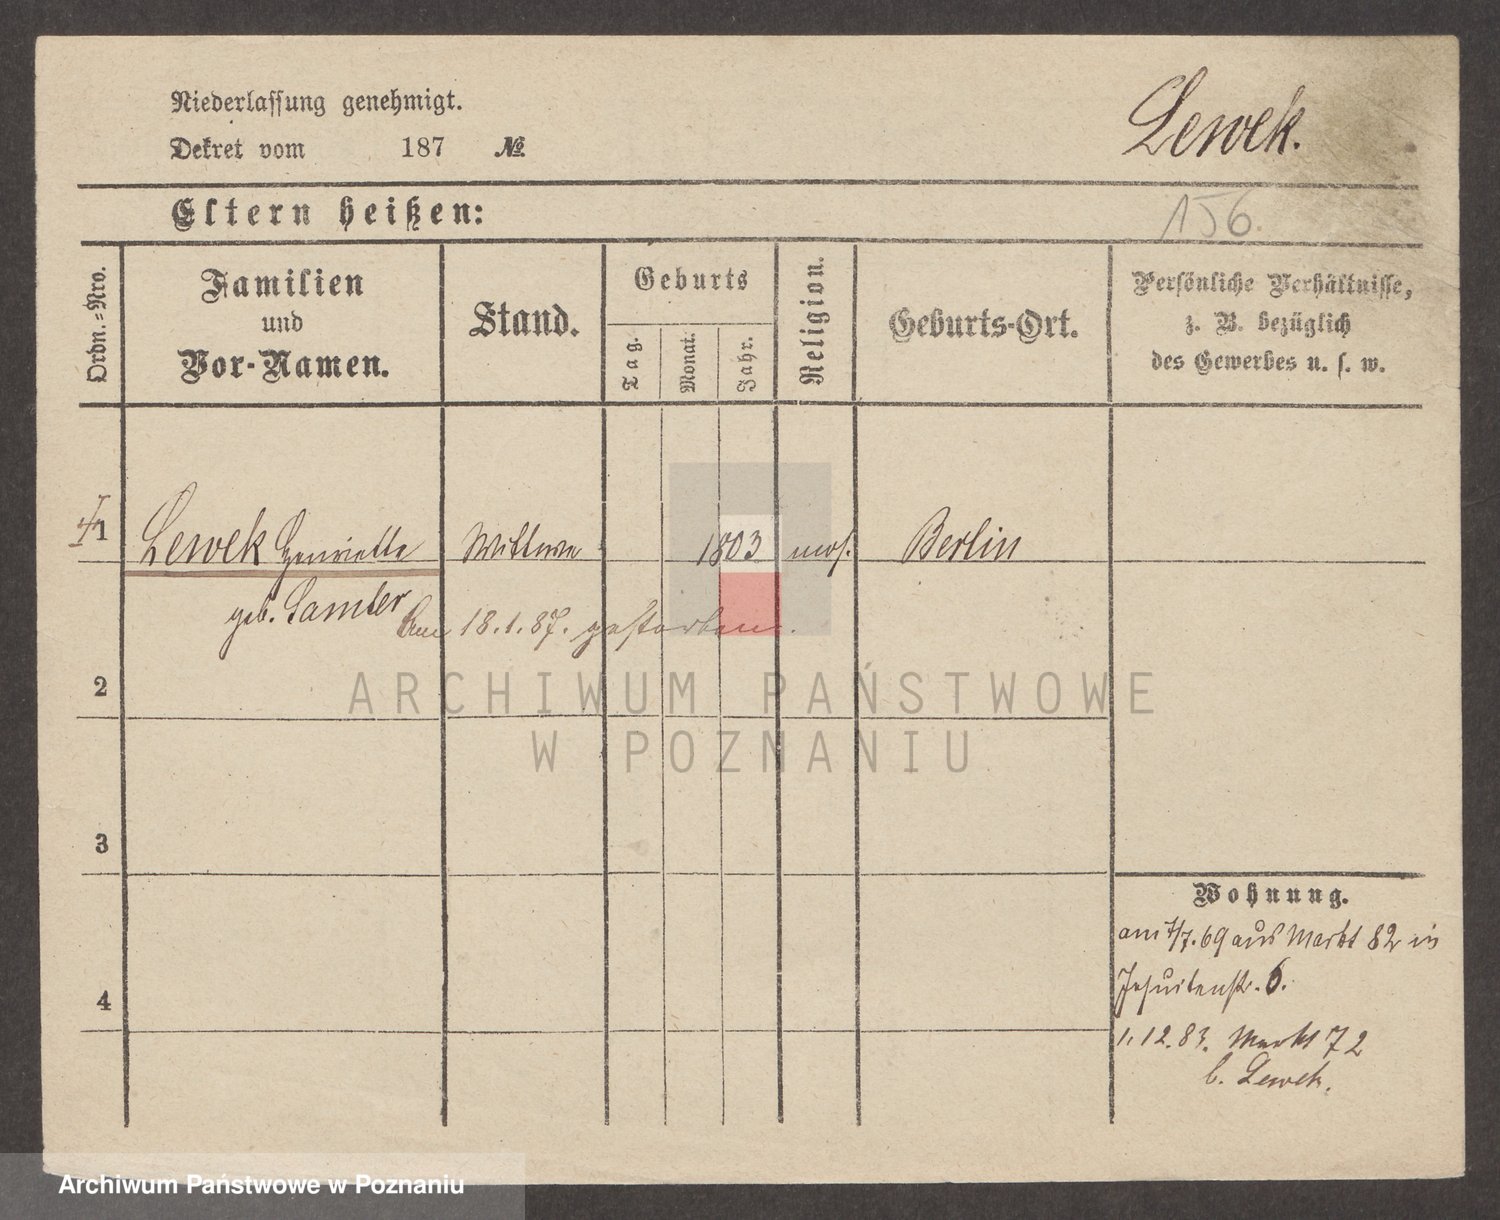 Niederlassung genehmigt.
Dekret vom 187 №
Lewek.
Eltern heißen:
156.
Ordn.=Nro.
Familien
und
Vor-Namen.
Stand.
Geburts
Tag.
Monat.
Jahr.
Religion.
Geburts-Ort.
Persönliche Verhältnisse,
z. B. bezüglich
des Gewerbes u. s. w.
1 Lewek Henriette Wittwe 1803 mos. Berlin
geb. Samter
Am 18.1.87. gestorben.
2
3
4
Wohnung.
am 7/7.69 aus Markt 82 in
Jesuitenstr. 6.
1.12.83. Markt 72
b. Lewek.
ARCHIWUM PAŃSTWOWE
W POZNANIU
Archiwum Państwowe w Poznaniu